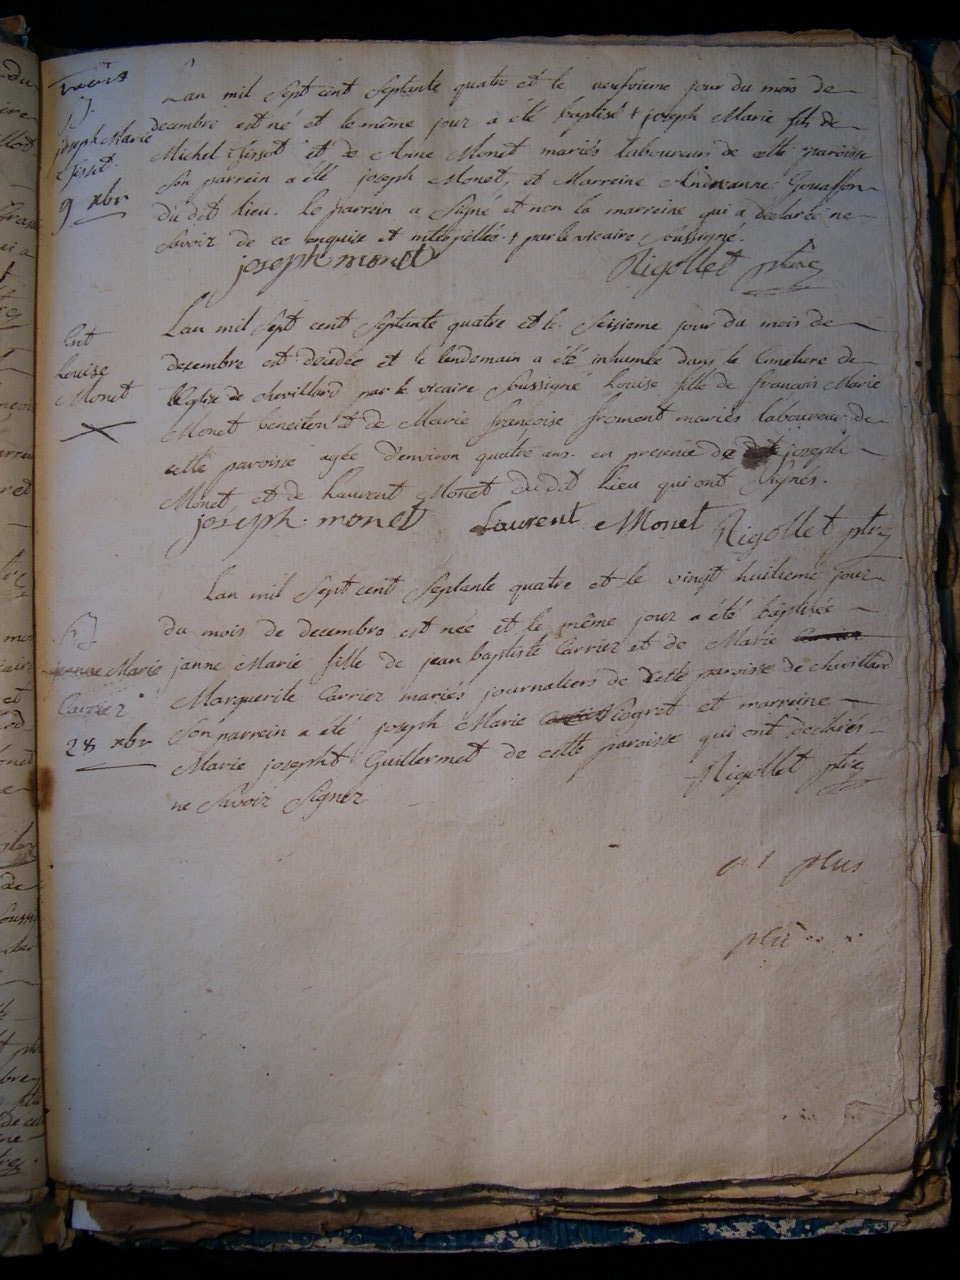 Lan mil Sept cent Septante quatre et le neufvieme jour du mois de
decembre est né et le même jour a été baptisé + joseph Marie fils de
Michel Tissot et de Anne Monet mariés laboureurs de cette paroisse
Son parrein a été joseph Monet, et Marreine Andreanne
du dit lieu. le parrein a Signé et non la marreine qui a declarée ne
Savoir de ce enquise et interpellée + par le vicaire Soussigné.
joseph monet Rigollet ptre
joseph Marie
Tissot
9 xbre
Lan mil Sept cent Septante quatre et le Seizieme jour du mois de
decembre est decedée et le lendemain a été inhumée dans le Cimetiere de
l'Eglise de chevillard par le vicaire Soussigné Louise fille de francois Marie
Monet beneiton et de Marie françoise froment mariés laboureur de
cette paroisse agée d'environ quatre ans. en presence de joseph
Monet et de Laurent Monet du dit lieu qui ont Signés.
joseph monet Laurent Monet Rigollet ptre
Ent
Louise
Monet
Lan mil Sept cent Septante quatre et le vingt huitieme jour
du mois de decembre est née et le même jour a été baptisée
janne Marie fille de jean baptiste Carrier et de Marie
Marguerite Carrier mariés journaliers de cette paroisse de chevillard
Son parrein a été joseph Marie Cogret et marreine
Marie josepht Guillermet de cette paroisse qui ont
ne Savoir Signer Rigollet ptre
jeanne Marie
Carrier
28 xbre
plus